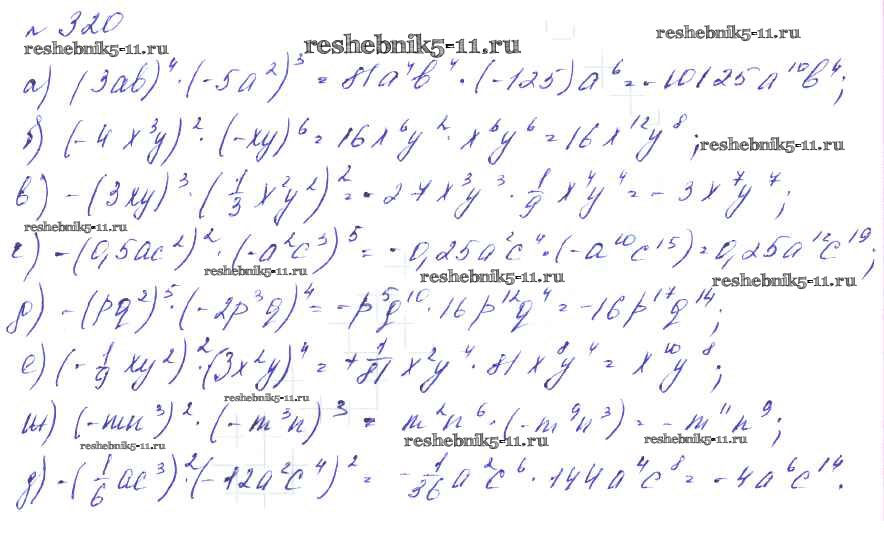 № 320
reshebnik5-11.ru reshebnik5-11.ru reshebnik5-11.ru
а) (3ab)⁴·(-5a²)³ = 81a⁴b⁴·(-125)a⁶ = -10125a¹⁰b⁴;
б) (-4x³y)²·(-xy)⁶ = 16x⁶y²·x⁶y⁶ = 16x¹²y⁸; reshebnik5-11.ru
в) -(3xy)³·(1/3 x²y²)² = -27x³y³·1/9 x⁴y⁴ = -3x⁷y⁷;
reshebnik5-11.ru
г) -(0,5ac²)²·(-a²c³)⁵ = -0,25a²c⁴·(-a¹⁰c¹⁵) = 0,25a¹²c¹⁹;
reshebnik5-11.ru reshebnik5-11.ru reshebnik5-11.ru
д) -(pq²)⁵·(-2p³q)⁴ = -p⁵q¹⁰·16p¹²q⁴ = -16p¹⁷q¹⁴;
е) (-1/9 xy²)²·(3x²y)⁴ = +1/81 x²y⁴·81x⁸y⁴ = x¹⁰y⁸;
reshebnik5-11.ru
ж) (-mn³)²·(-m³n)³ = m²n⁶·(-m⁹n³) = -m¹¹n⁹;
reshebnik5-11.ru reshebnik5-11.ru reshebnik5-11.ru
д) -(1/6 ac³)²·(-12a²c⁴)² = -1/36 a²c⁶·144a⁴c⁸ = -4a⁶c¹⁴.